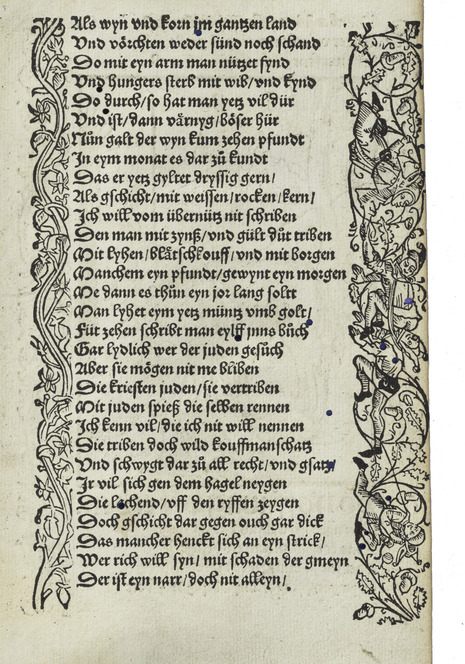 Als wyn vnd korn im gantzen land
Vnd vörchten weder sünd noch schand
Do mit eyn arm man nützet fynd
Vnd hungers sterb mit wib/vnd kynd
Do durch/so hat man yetz vil dür
Vnd ist/dann värnyg/böser hür
Nůn galt der wyn kum zehen pfundt
In eym monat es dar zů kundt
Das er yetz gyltet dryssig gern/
Als gschicht/mit weissen/rocken/kern/
Ich will vom übernütz nit schriben
Den man mit zynß/vnd gült důt triben
Mit lyhen/blätschkouff/vnd mit borgen
Manchem eyn pfundt/gewynt eyn morgen
Me dann es thůn eyn jor lang soltt
Man lyhet eym yetz müntz vmb golt/
Für zehen schribt man eylff jnns bůch
Gar lydlich wer der juden gesůch
Aber sie mögen nit me bliben
Die kriesten juden/sie vertriben
Mit juden spieß die selben rennen
Ich kenn vil/die ich nit will nennen
Die triben doch wild kouffmanschatz
Vnd schwygt dar zů all recht/vnd gsatz/
Ir vil sich gen dem hagel neygen
Die lachend/vff den ryffen zeygen
Doch gschicht dar gegen ouch gar dick
Das mancher henckt sich an eyn strick/
Wer rich will syn/mit schaden der gmeyn
Der ist eyn narr/doch nit alleyn/